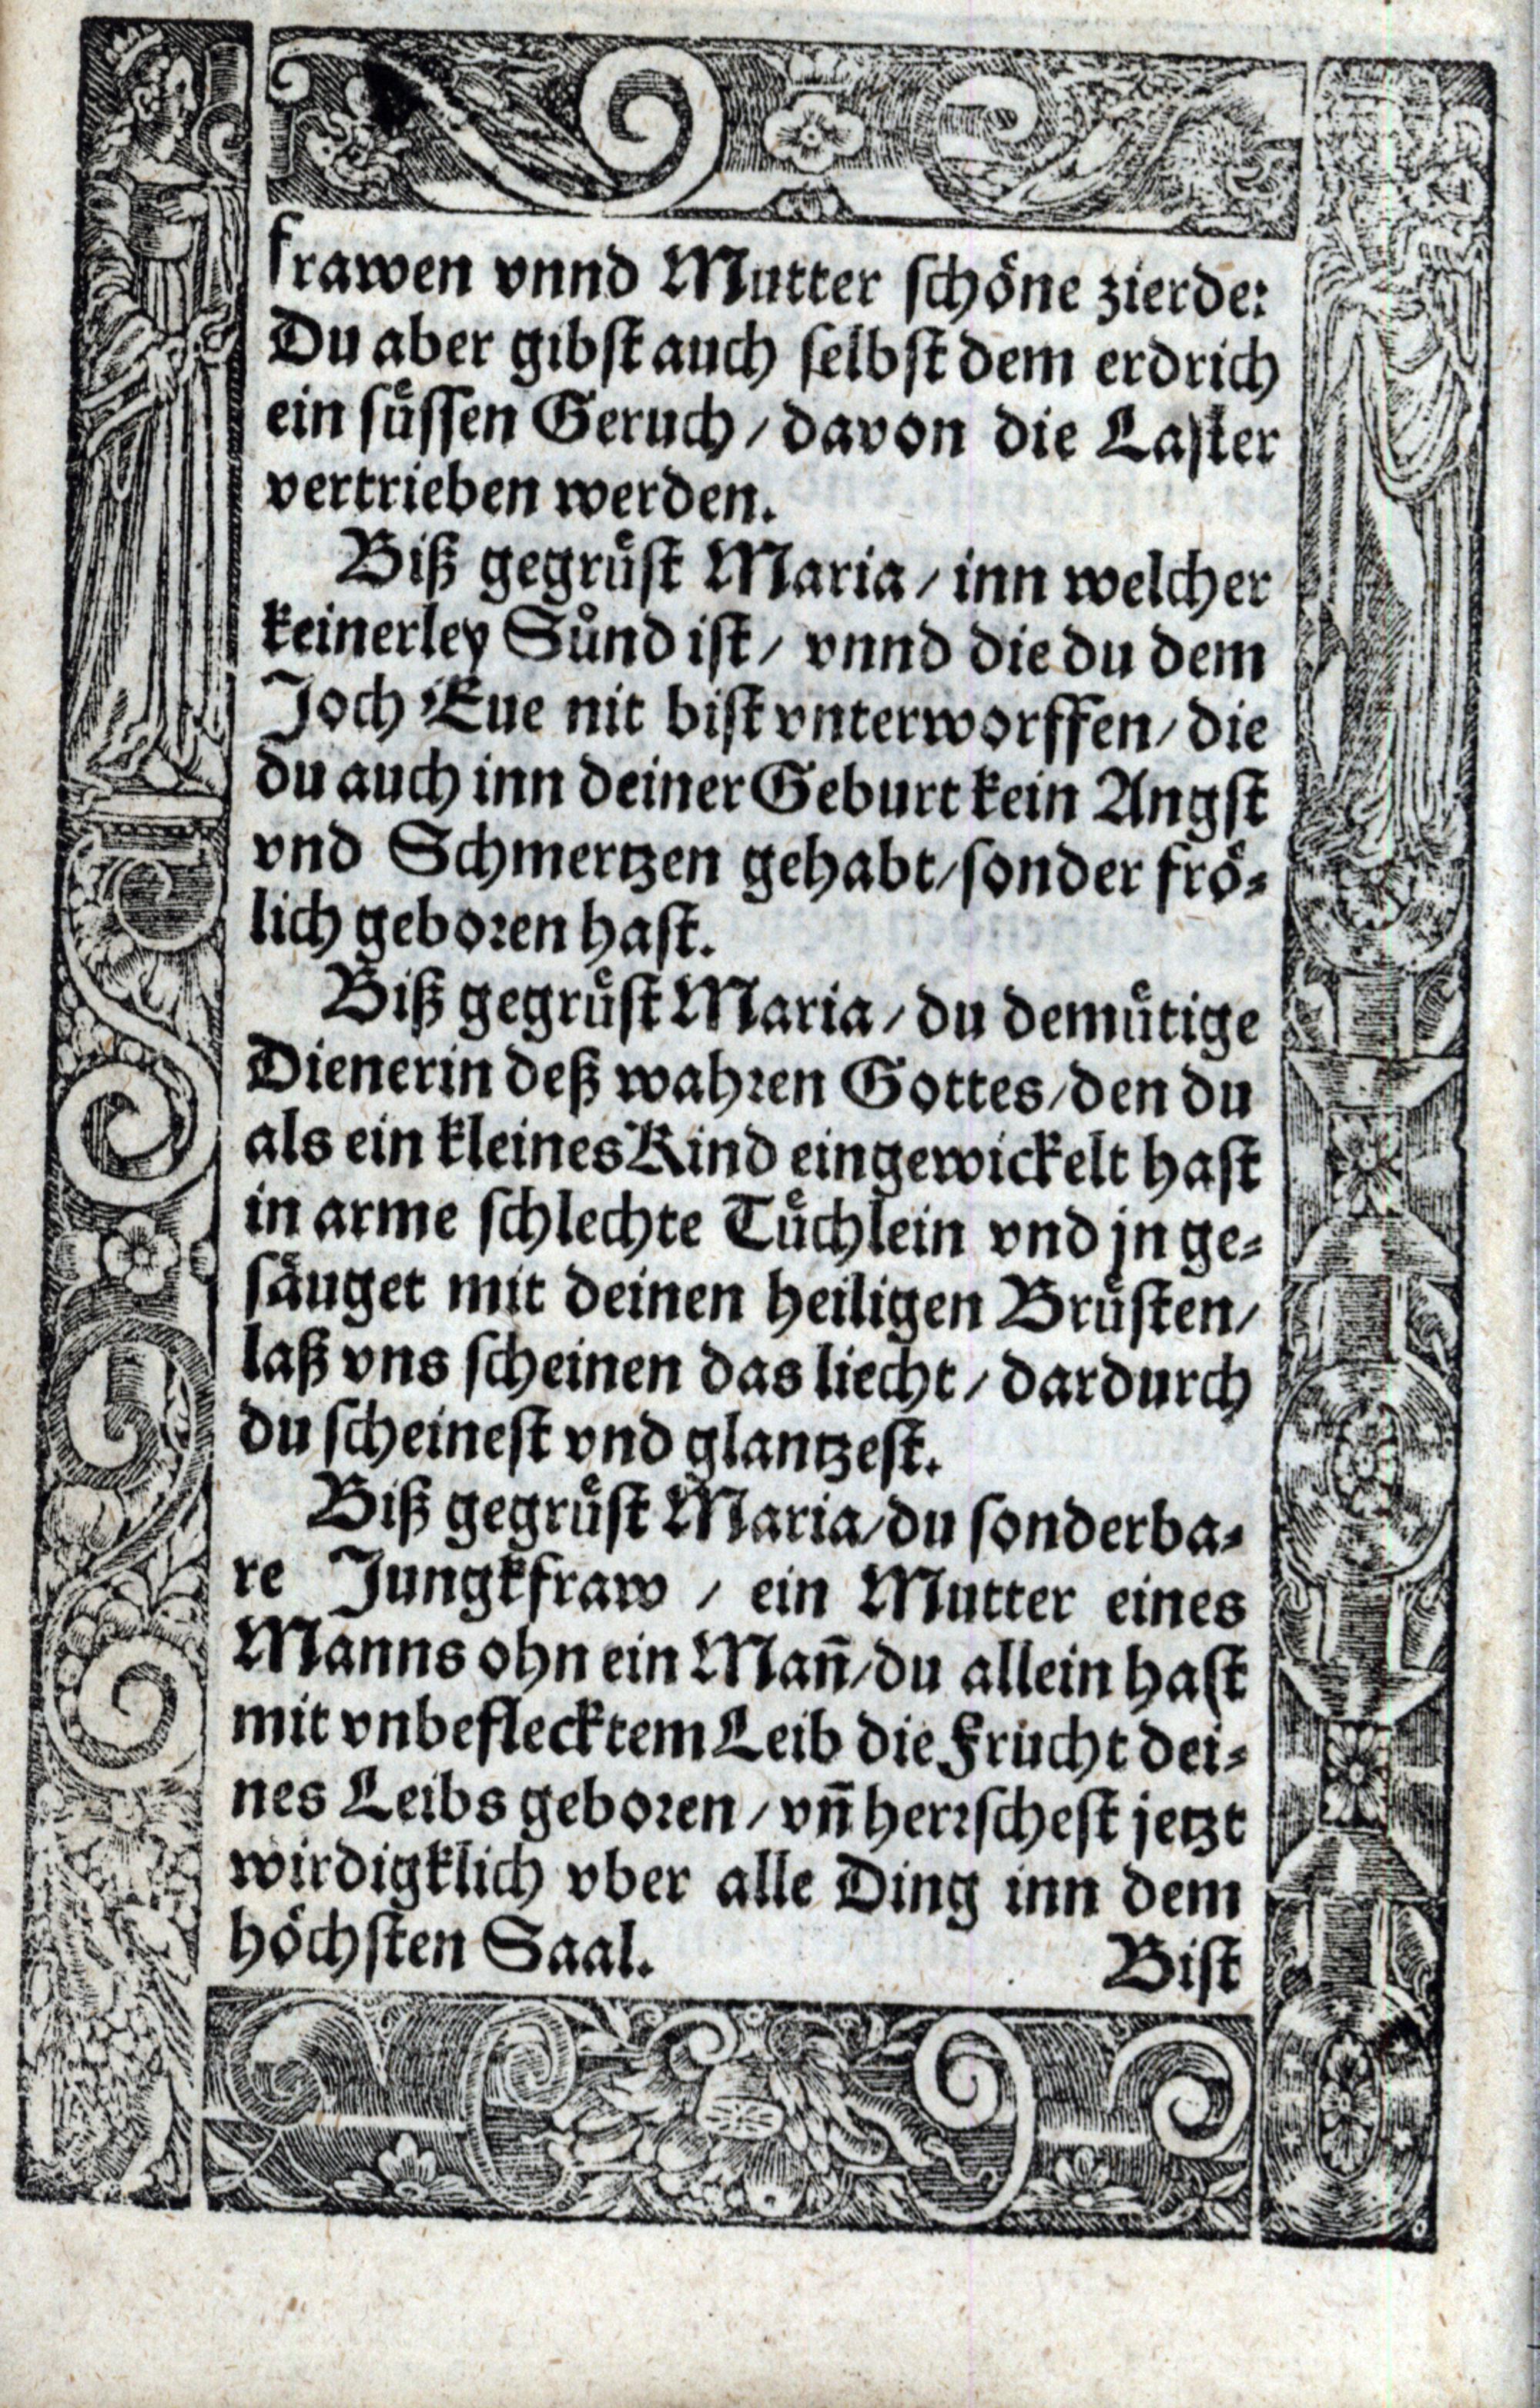 frawen vnnd Mutter schoͤne zierde:
Du aber gibst auch selbst dem erdrich
ein suͤssen Geruch / davon die Laster
vertrieben werden.
Biß gegruͤst Maria / inn welcher
keinerley Suͤnd ist / vnnd die du dem
Joch Eue nit bist vnterworffen / die
du auch inn deiner Geburt kein Angst
vnd Schmertzen gehabt / sonder froͤ⸗
lich geboren hast.
Biß gegruͤst Maria / du demuͤtige
Dienerin deß wahren Gottes / den du
als ein kleines Kind eingewickelt hast
in arme schlechte Tuͤchlein vnd jn ge⸗
saͤuget mit deinen heiligen Bruͤsten /
laß vns scheinen das liecht / dardurch
du scheinest vnd glantzest.
Biß gegruͤst Maria / du sonderba⸗
re Jungkfraw / ein Mutter eines
Manns ohn ein Mañ / du allein hast
mit vnbeflecktem Leib die Frucht dei⸗
nes Leibs geboren / vñ herrschest jetzt
wirdigklich vber alle Ding inn dem
hoͤchsten Saal.
Bist